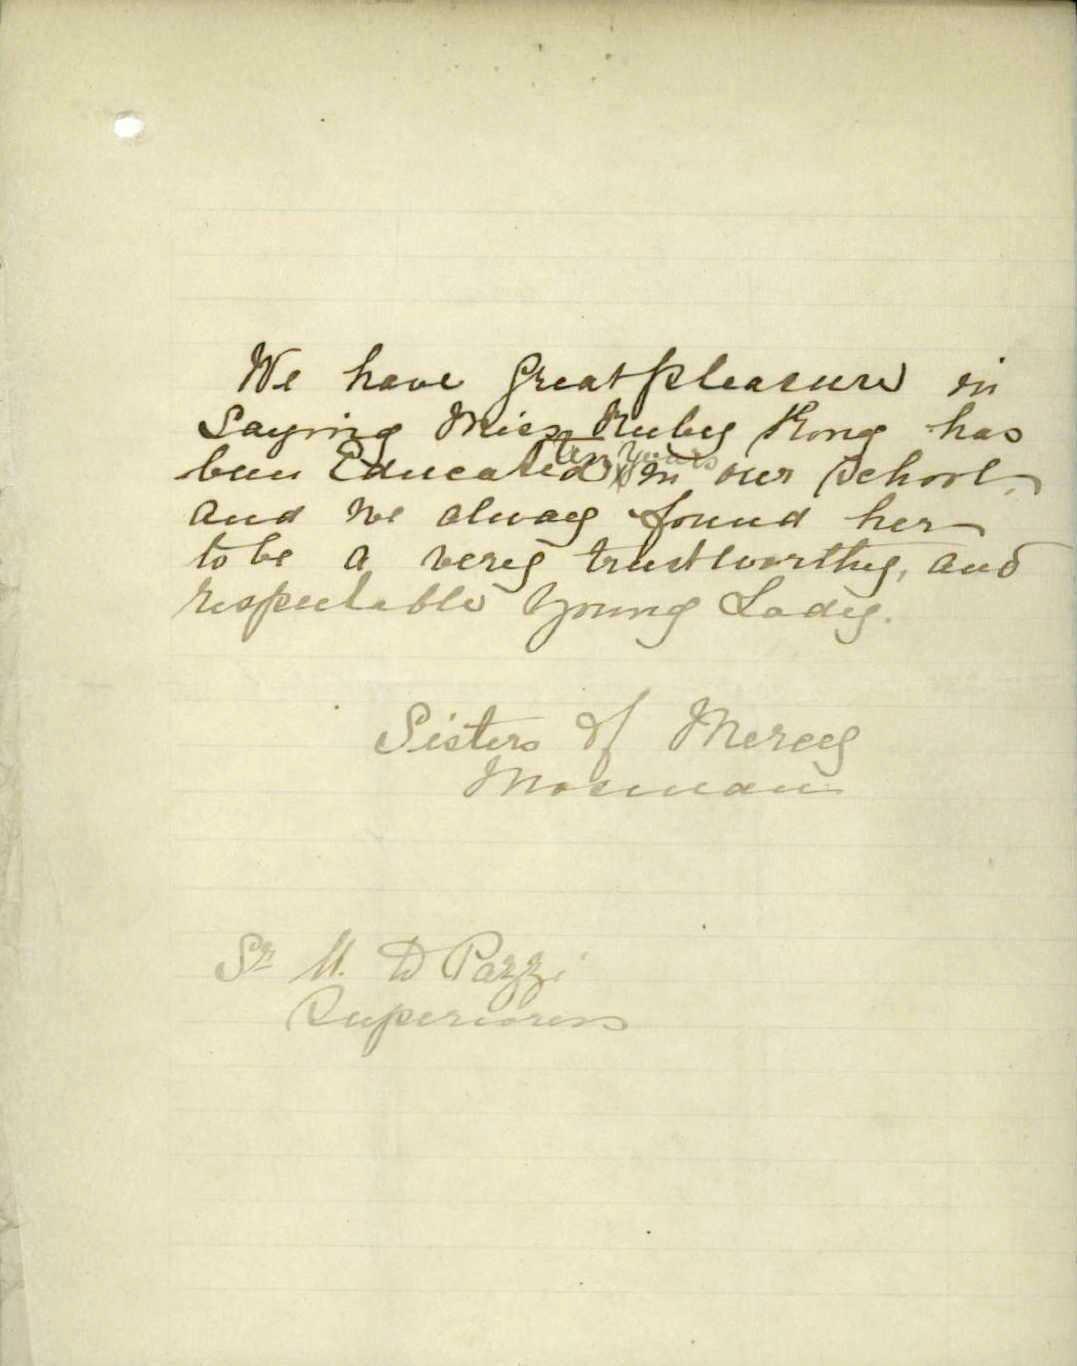 We have great pleasure in
Saying Miss Ruby Kong has
been Educated ten years in our School,
and we alway found her
to be a very trustworthy, and
respectable Young Lady.
Sisters of Mercy
Mosman
Sr M. D Pazzi
Superioress